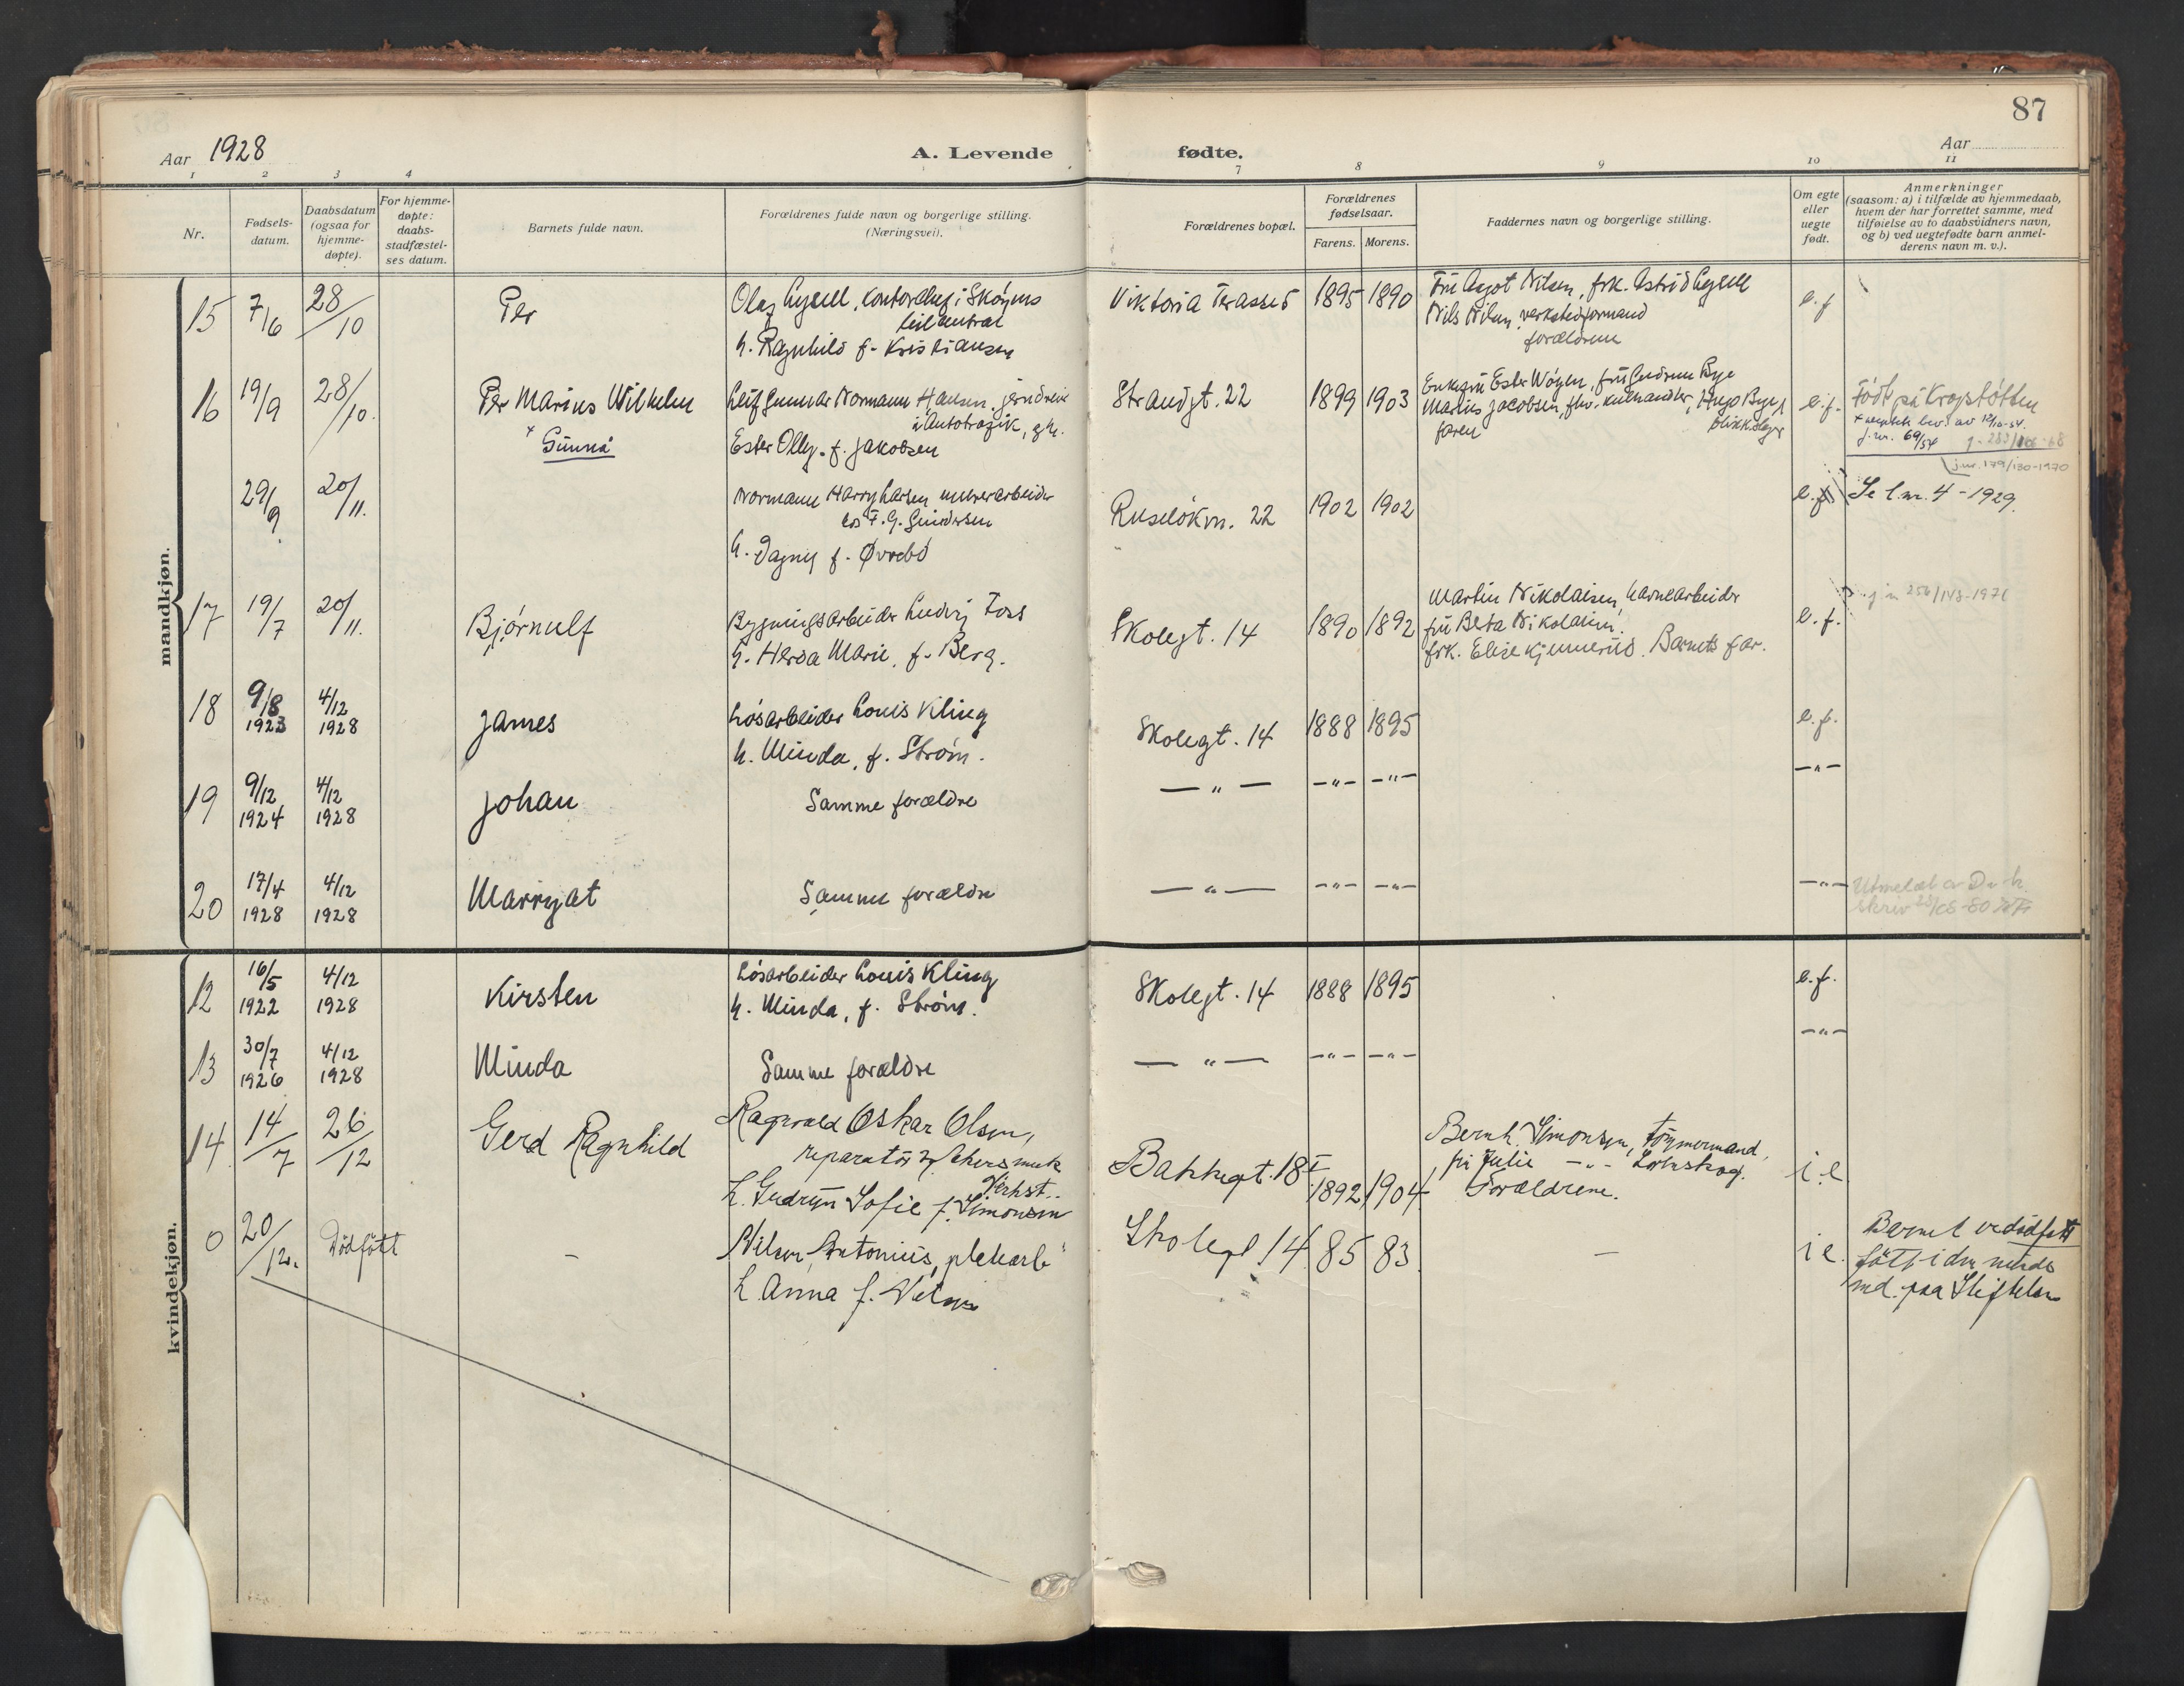 87
Aar 1928
A. Levende fødte.
Aar
1 2 3 4 7 8 9 10 11
Nr.
Fødsels-
datum.
Daabsdatum
(ogsaa for
hjemme-
døpte).
For hjemme-
døpte:
daabs-
stadfæstel-
ses datum.
Barnets fulde navn.
Forældrenes fulde navn og borgerlige stilling.
(Næringsvei).
Forældrenes bopæl.
Forældrenes
fødselsaar.
Farens. Morens.
Faddernes navn og borgerlige stilling.
Om egte
eller
uegte
født.
Anmerkninger
(saasom: a) i tilfælde av hjemmedaab,
hvem der har forrettet samme, med
tilføielse av to daabsvidners navn,
og b) ved uegtefødte barn anmel-
derens navn m. v.).
mandkjøn.
15 7/6 28/10 Per
Olaf Lysell, kontorchef i Skøyens
h. Ragnhild f. Kristiansen
Viktoria Terasse 5 1895 1890
Fru Aagot Nilsen, frk. Astrid Lysell
Nils Nilsen, verkstedformand
forældrene
e.f
16 19/9 28/10. Per Marius Wilhelm
+ Gunnå
Leif Gunnar Normann Hansen, jerndreier
i Autotrafik, g.h.
Ester Olly. f. Jakobsen
Strandgt. 22 1899 1903
Enkefru Ester Wøyen, fru Gudrun Bye
Marius Jacobsen, fhv. , Hugo Bye,
faren blikkslager
e.f.
Født på Krogstøtten
j.nr. 69/54
j.nr. 179/130-1970
29/9 20/11.
Normann Harry Larsen murerarbeider
hos F. G. Gundersen
h. Dagny f. Øvrebø
Ruseløkvn. 22 1902 1902
Se l.nr. 4 - 1929.
17 19/7 20/11. Bjørnulf
Bygningsarbeider Ludvig Foss
h. Herda Marie, f. Berg.
Skolegt. 14 1890 1892
Martin Nikolaisen, havnearbeider
fru Beta Nikolaisen.
frk. Elise Kjennerud. Barnets far.
e.f.
18 9/8 1923 4/12 1928 James
Løsarbeider Louis Kling
h. Minda, f. Strøm.
Skolegt. 14 1888 1895 e.f.
19 9/12 1924 4/12 1928 Johan
Samme forældre
— " — — " — — " — — " —
20 17/4 1928 4/12 1928 Marryat
Samme forældre
— " — — " — — " — — " —
Utmeldt av D.n.k.
kvindekjøn.
12 16/5 1922 4/12 1928 Kirsten
Løsarbeider Louis Kling
h. Minda, f. Strøm.
Skolegt. 14 1888 1895 e.f.
13 30/7 1926 4/12 1928 Minda
Samme forældre
— " — — " — — " — — " —
14. 14/7 26/12 Gerd Ragnhild
Ragnvald Oskar Olsen,
reparatør v/ Akers mek
Verkst..
h. Gudrun Sofie f. Simonsen
Bakkegt. 18 I 1892 1904
Bernh. Simonsen, tømmermand,
fru Julie — " — Lørenskog.
Forældrene.
i.e
0 20/12. Dødfødt —
Nilsen, Antonius, pakkarb
h. Anna f. Nilsen
Skolegt 14 85 83 — i e.
Barnet er dødfødt
født i den niende
md. paa Stiftelsen